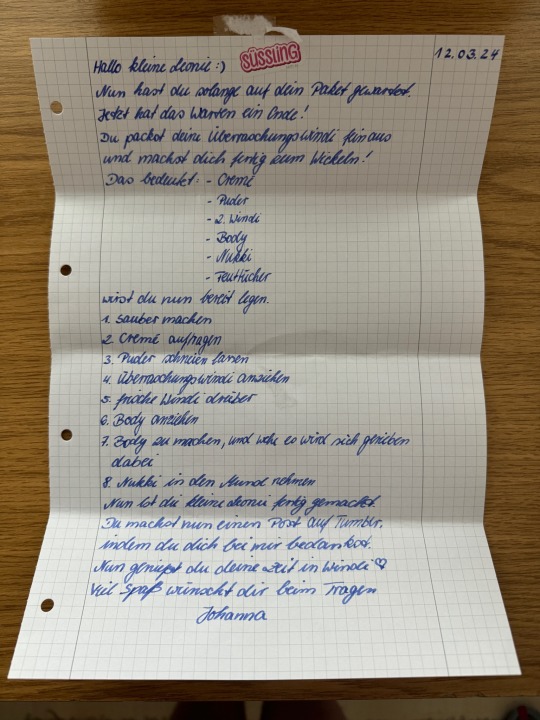 12.03.24
SÜSSLING
Hallo kleine Leonie :)
Nun hast du solange auf dein Paket gewartet.
Jetzt hat das Warten ein Ende!
Du packst deine Überraschungswindi fein aus
und machst dich fertig zum Wickeln!
Das bedeutet: - Creme
- Puder
- 2. Windi
- Body
- Nukki
- Feuttücher
wirst du nun bereit legen.
1. sauber machen
2. Creme auftragen
3. Puder schneien lassen
4. Überraschungswindi anziehen
5. frische Windi drüber
6. Body anziehen
7. Body zu machen, und wehe es wird sich gerieben
dabei
8. Nukki in den Mund nehmen
Nun ist die kleine Leonie fertig gemacht.
Du machst nun einen Post auf Tumblr,
indem du dich bei mir bedankst.
Nun genießt du deine Zeit in Windi ♡
Viel Spaß wünscht dir beim Tragen
Johanna